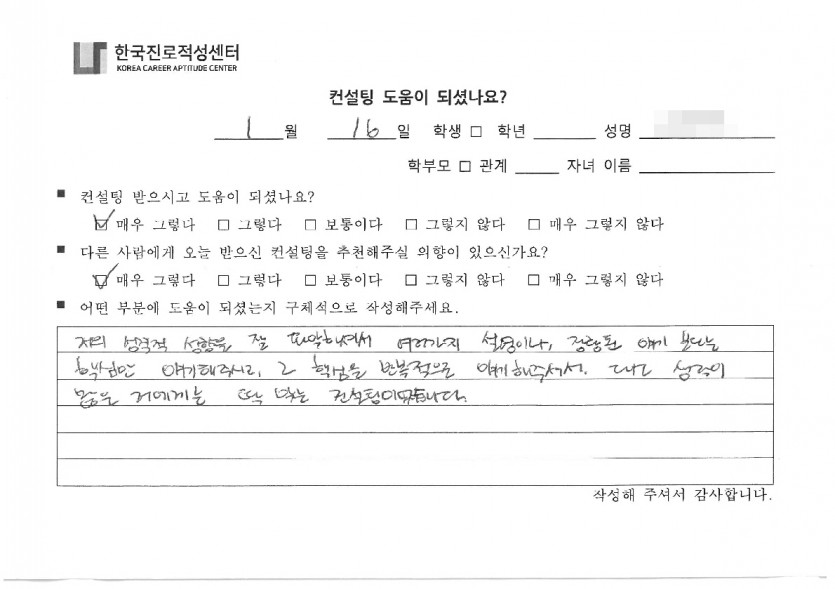 한국진로적성센터
KOREA CAREER APTITUDE CENTER
컨설팅 도움이 되셨나요?
1 월 16 일 학생 □ 학년 성명
학부모 □ 관계 자녀 이름
■ 컨설팅 받으시고 도움이 되셨나요?
☑ 매우 그렇다 □ 그렇다 □ 보통이다 □ 그렇지 않다 □ 매우 그렇지 않다
■ 다른 사람에게 오늘 받으신 컨설팅을 추천해주실 의향이 있으신가요?
☑ 매우 그렇다 □ 그렇다 □ 보통이다 □ 그렇지 않다 □ 매우 그렇지 않다
■ 어떤 부분에 도움이 되셨는지 구체적으로 작성해주세요.
저의 성격적 성향을 잘 파악하셔서 여러가지 설명이나, 장황한 얘기 보다는
핵심만 얘기해주시고, 그 핵심을 반복적으로 얘기해주셔서. 생각이
많은 저에게는 딱 맞는 컨설팅이었습니다.
작성해 주셔서 감사합니다.